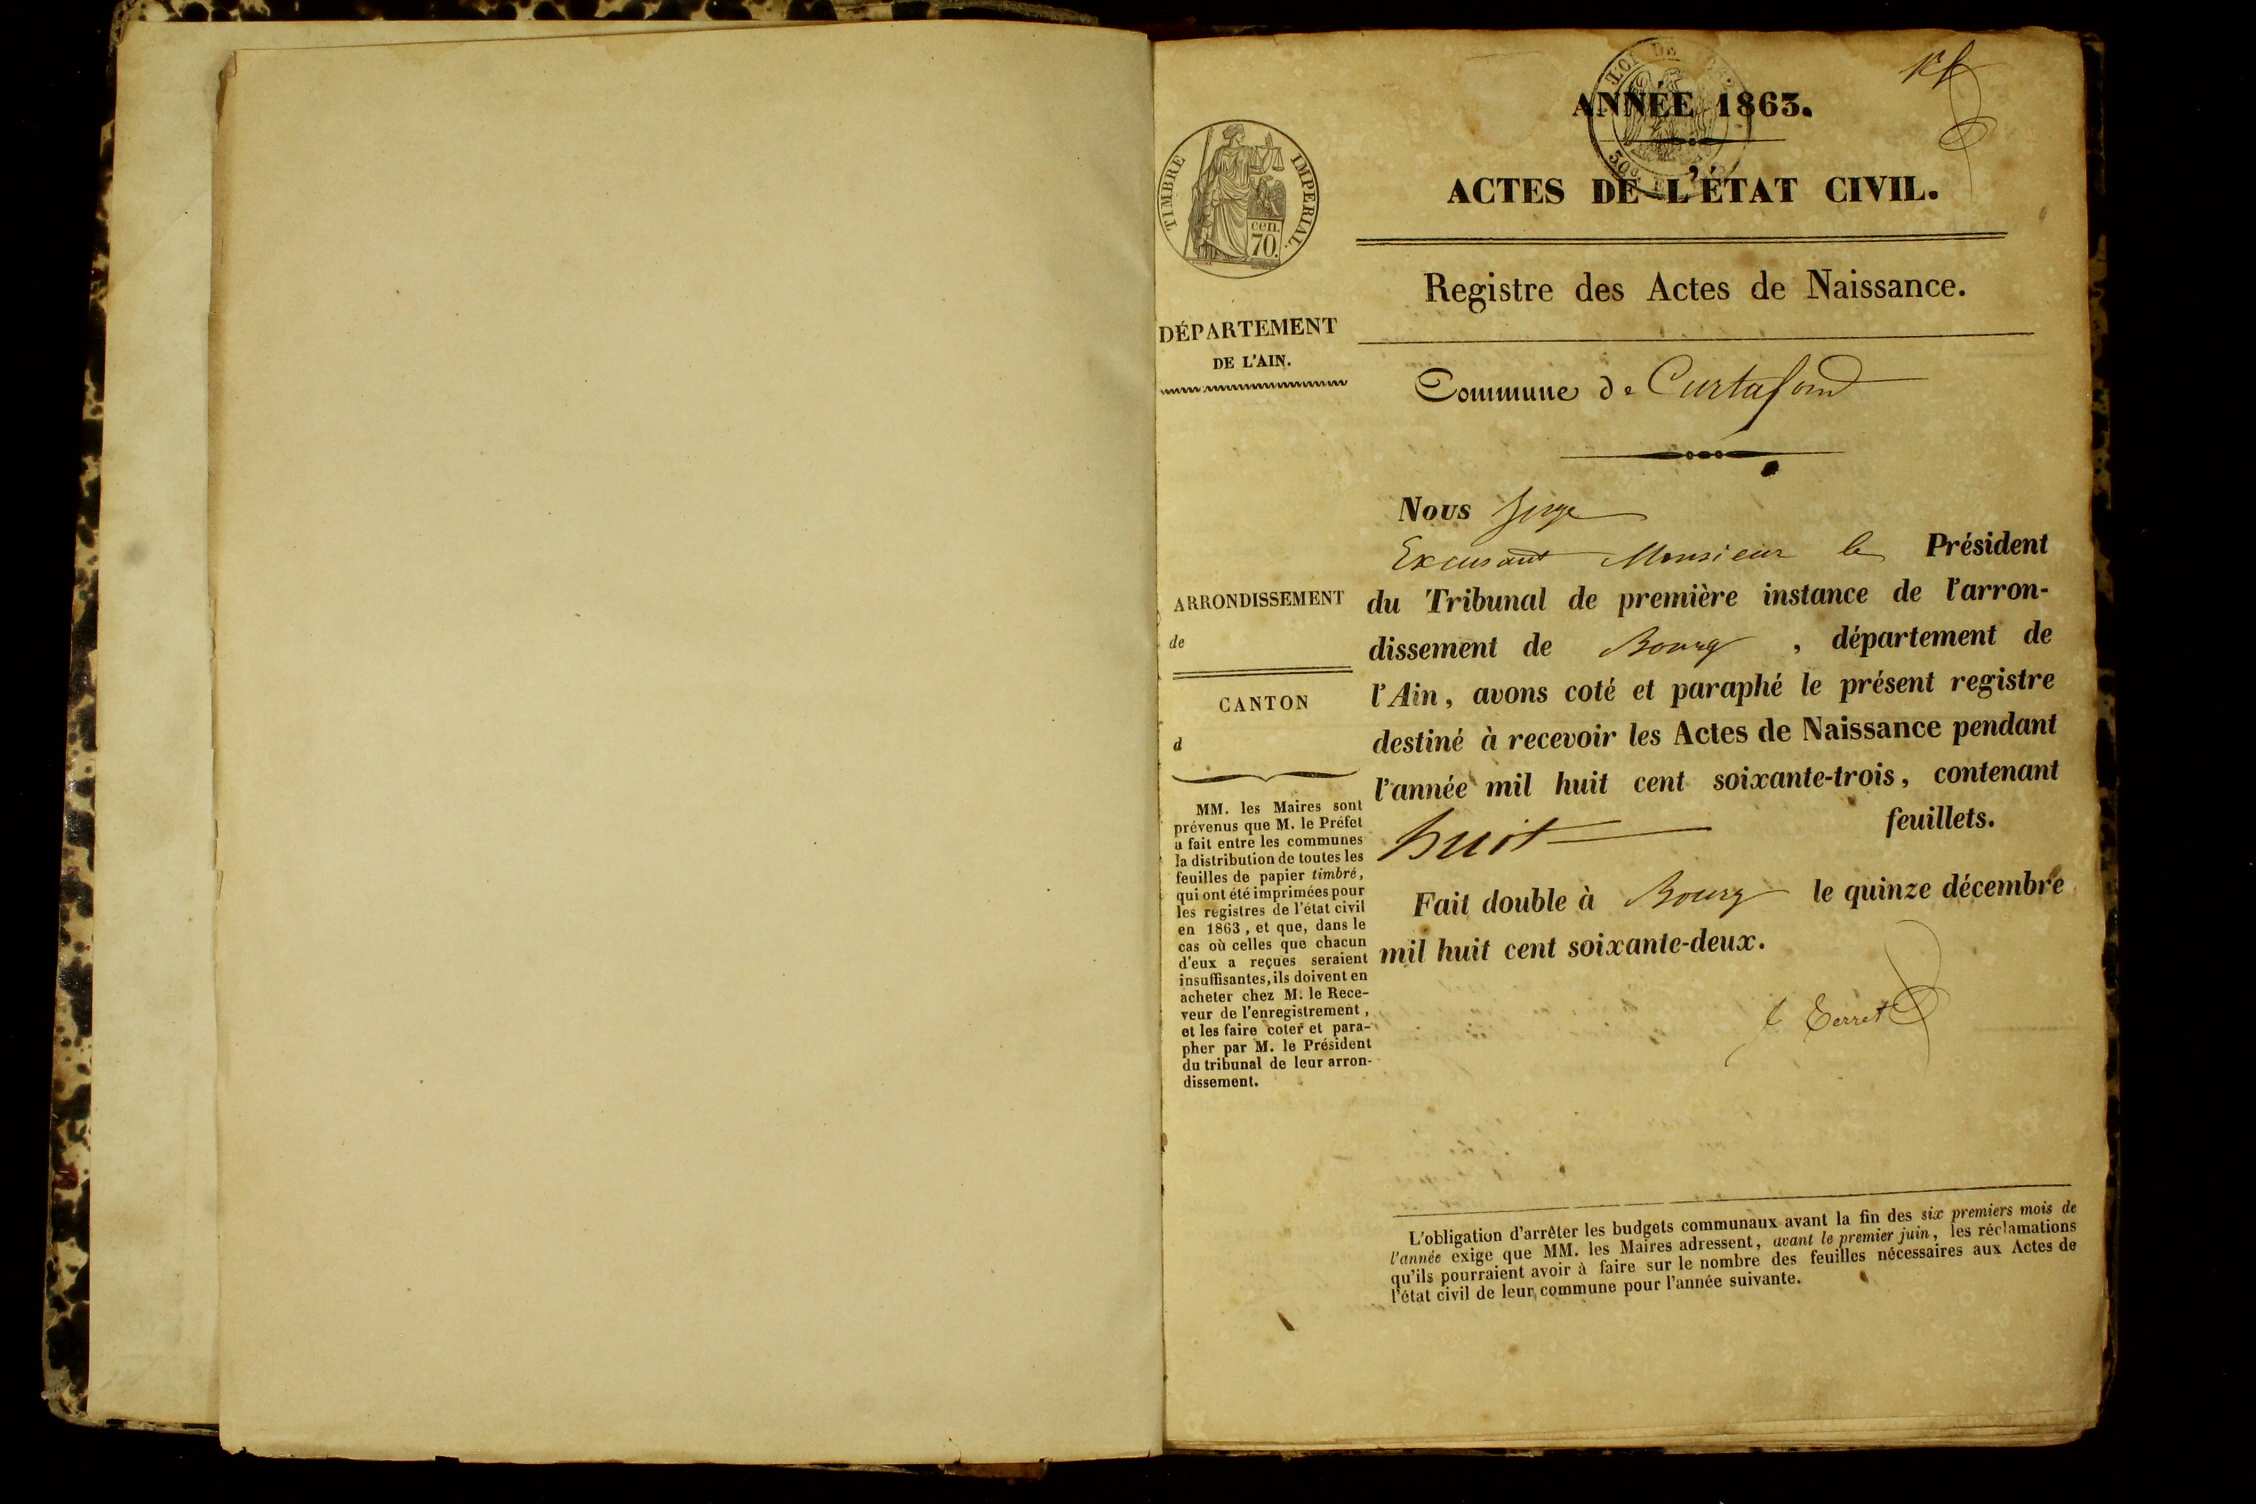 ANNÉE 1863.
ACTES DE L'ÉTAT CIVIL.
TIMBRE IMPERIAL.
cen.
70.
Registre des Actes de Naissance.
DÉPARTEMENT
DE L'AIN.
Commune de Curtafond
Nous Juge
Excusant Monsieur le Président
du Tribunal de première instance de l'arron-
dissement de Bourg, département de
l'Ain, avons coté et paraphé le présent registre
destiné à recevoir les Actes de Naissance pendant
l'année mil huit cent soixante-trois, contenant
huit feuillets.
Fait double à Bourg le quinze décembre
mil huit cent soixante-deux.
Terret
ARRONDISSEMENT
de
CANTON
d
MM. les Maires sont
prévenus que M. le Préfet
a fait entre les communes
la distribution de toutes les
feuilles de papier timbré,
qui ont été imprimées pour
les registres de l'état civil
en 1863, et que, dans le
cas où celles que chacun
d'eux a reçues seraient
insuffisantes, ils doivent en
acheter chez M. le Rece-
veur de l'enregistrement,
et les faire coter et para-
pher par M. le Président
du tribunal de leur arron-
dissement.
L'obligation d'arrêter les budgets communaux avant la fin des six premiers mois de
l'année exige que MM. les Maires adressent, avant le premier juin, les réclamations
qu'ils pourraient avoir à faire sur le nombre des feuilles nécessaires aux Actes de
l'état civil de leur commune pour l'année suivante.